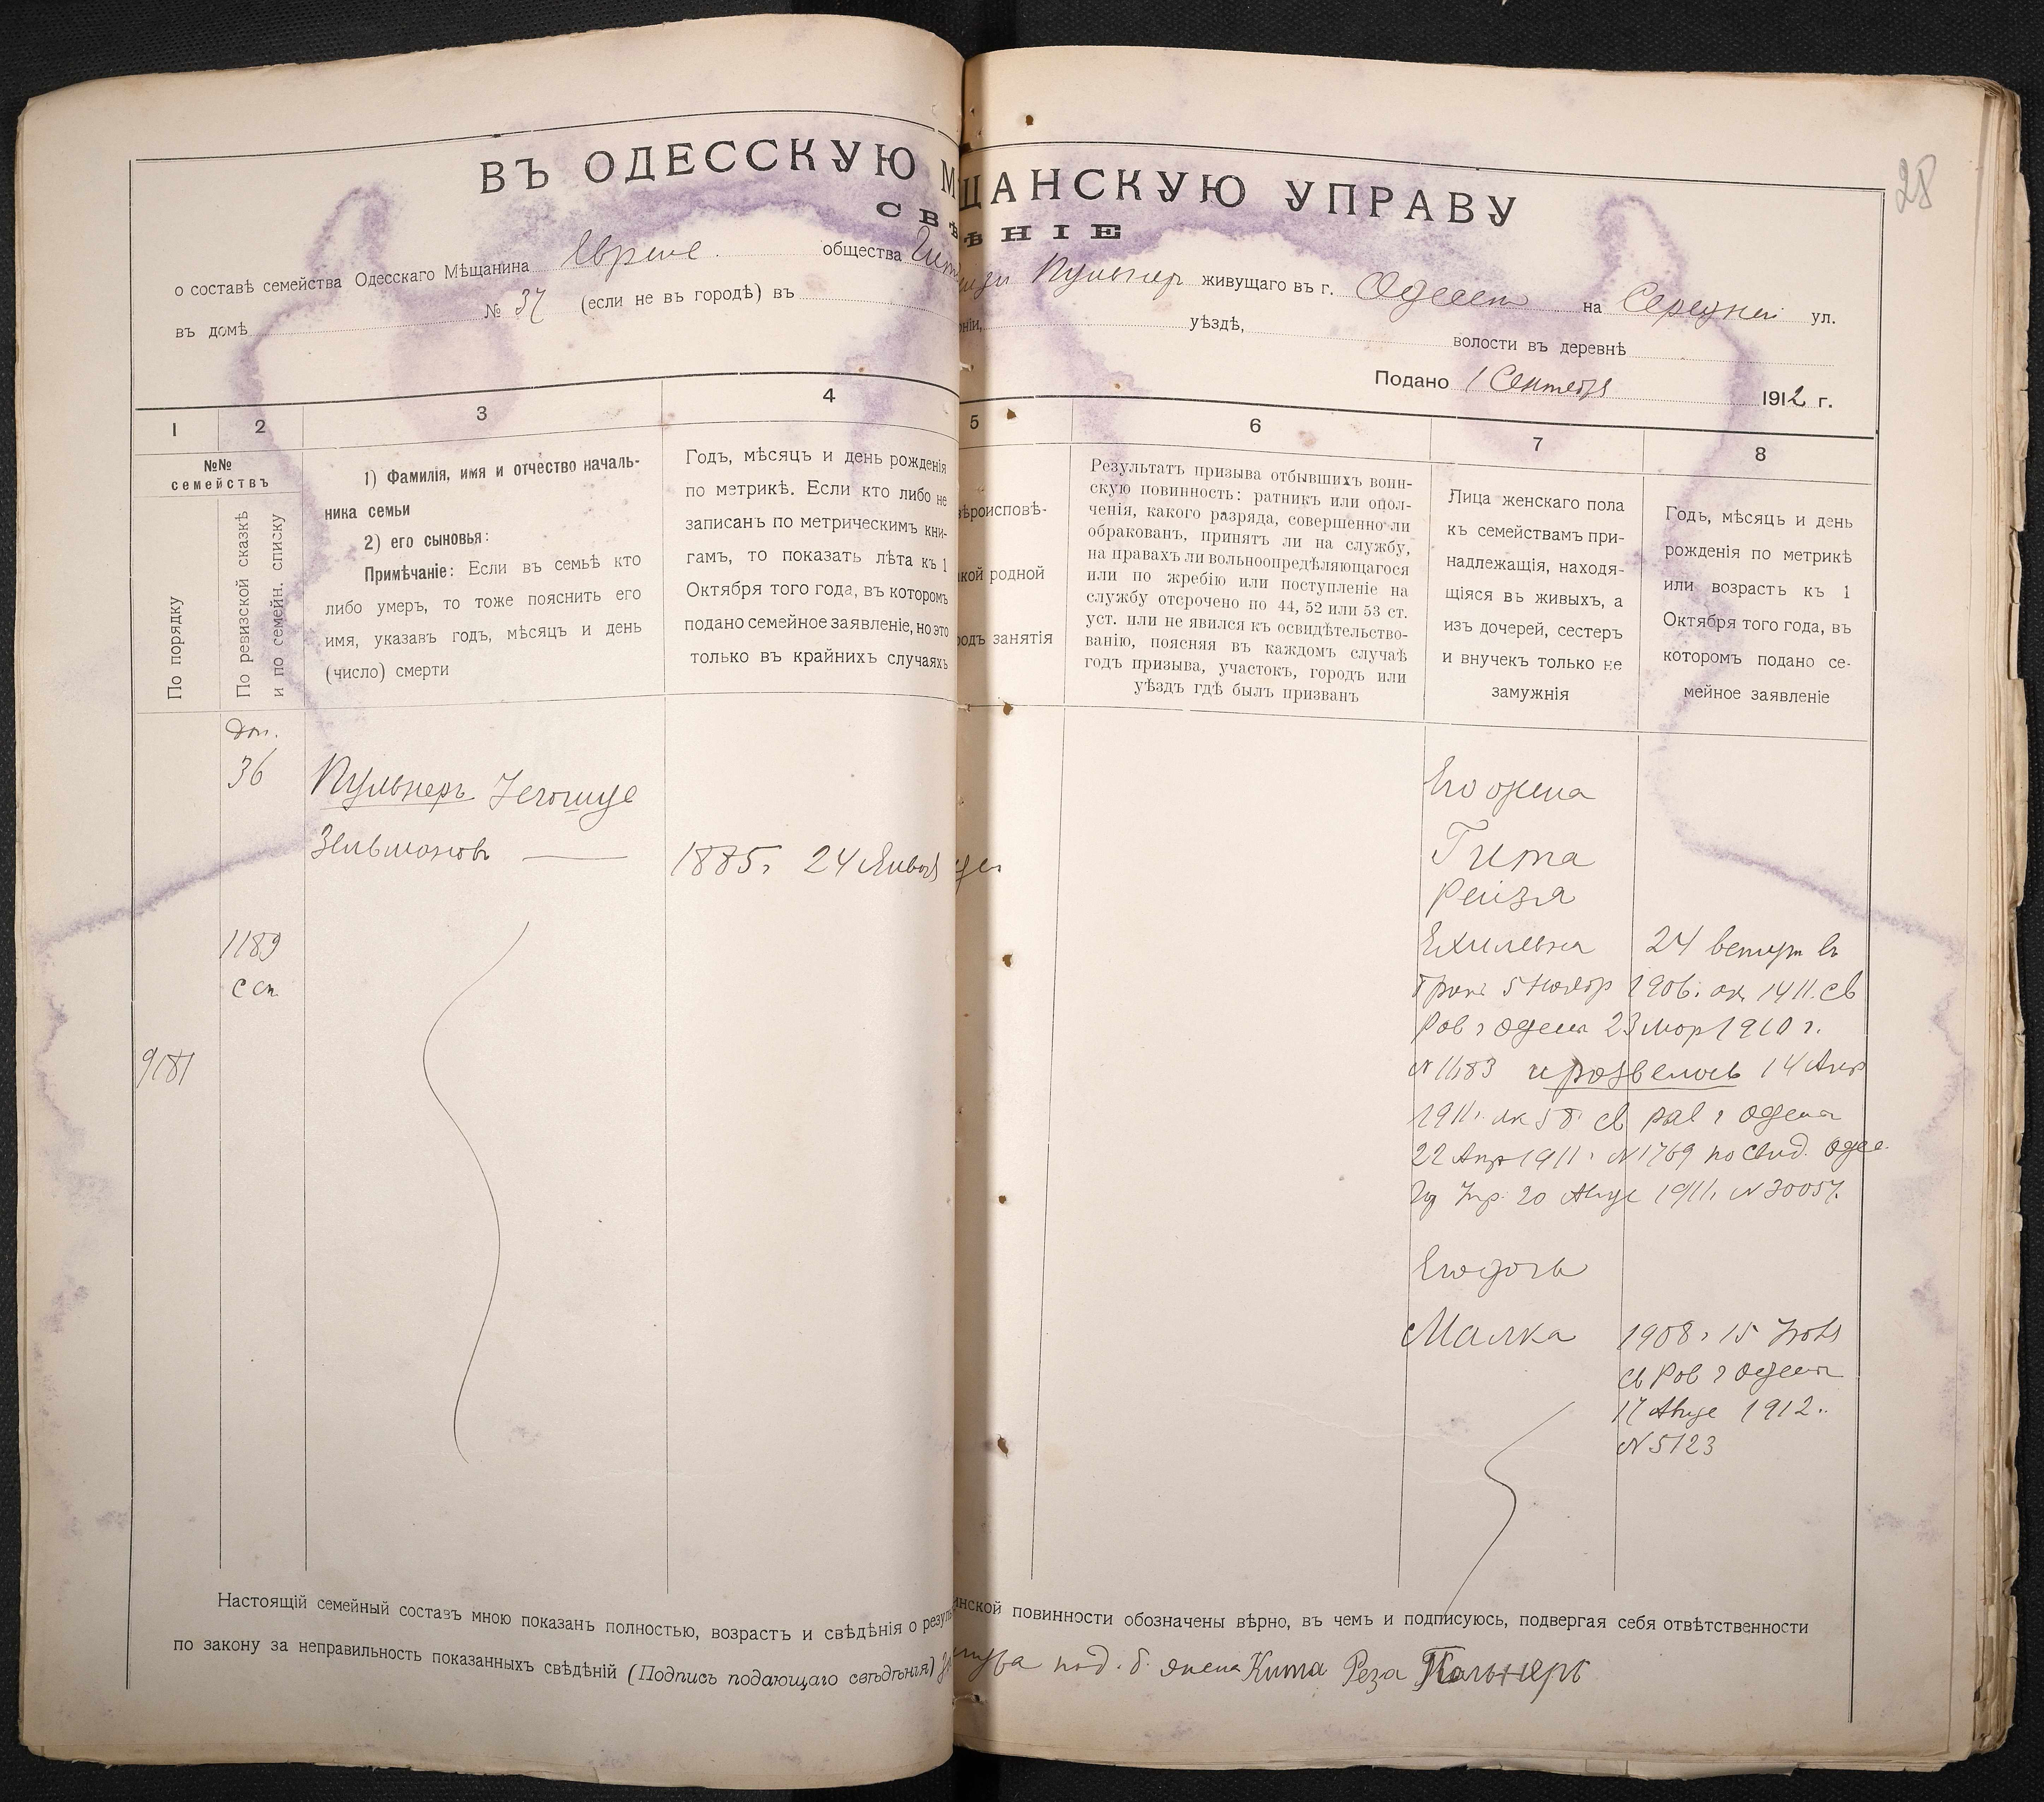 28
ВЪ ОДЕССКУЮ М ЩАНСКУЮ УПРАВУ
СВѢ ѢНІЕ
о составѣ семейства Одесскаго Мѣщанина Евреис. общества Пульнер живущаго въ г. Одессѣ на Средней ул.
въ домѣ № 37 (если не въ городѣ) въ рніи, уѣздѣ, волости въ деревнѣ
Подано 1 Сентября 1912 г.
1 2 3 4 5 6 7 8
№№ семействъ
По порядку
По ревизской сказкѣ
и по семейн. списку
1) Фамилія, имя и отчество началь-
ника семьи
2) его сыновья:
Примѣчаніе: Если въ семьѣ кто
либо умеръ, то тоже пояснить его
имя, указавъ годъ, мѣсяцъ и день
(число) смерти
Годъ, мѣсяцъ и день рожденія
по метрикѣ. Если кто либо не
записанъ по метрическимъ кни-
гамъ, то показать лѣта къ 1
Октября того года, въ которомъ
подано семейное заявленіе, но это
только въ крайнихъ случаяхъ
вѣроисповѣ-
акой родной
родъ занятія
Результатъ призыва отбывшихъ воин-
скую повинность: ратникъ или опол-
ченія, какого разряда, совершенно ли
обракованъ, принятъ ли на службу,
на правахъ ли вольноопредѣляющагося
или по жребію или поступленіе на
службу отсрочено по 44, 52 или 53 ст.
уст. или не явился къ освидѣтельство-
ванію, поясняя въ каждомъ случаѣ
годъ призыва, участокъ, городъ или
уѣздъ гдѣ былъ призванъ
Лица женскаго пола
къ семействамъ при-
надлежащія, находя-
щіяся въ живыхъ, а
изъ дочерей, сестеръ
и внучекъ только не
замужнія
Годъ, мѣсяцъ и день
рожденія по метрикѣ
или возрастъ къ 1
Октября того года, въ
которомъ подано се-
мейное заявленіе
Доп.
36
Пульнеръ Іегошуе
Зельмановъ
1885 г. 24 Января
1189
С сп
9181
Его жена
Гита
Рейзя
Ехилевна 24 вступ въ
брак 5 Ноябр 1906 г. ак 1411. св
Рав г Одессы 23 Мар 1910 г.
№ 1183 и развелись 14 Апр
1911 г. ак 58 св рав г Одессы
22 Апр 1911 г. № 1769 по свид. Одес.
Гор Упр. 20 Авгус 1911 г. № 30057.
Его дочь
Малка 1908 г 15
св Рав г Одессы
17 Авгус 1912 г.
№ 5123
Настоящій семейный составъ мною показанъ полностью, возрастъ и свѣдѣнія о резул инской повинности обозначены вѣрно, въ чемъ и подписуюсь, подвергая себя отвѣтственности
по закону за неправильность показанныхъ свѣдѣній (Подпись подающаго свѣдѣнія) под. б. жена Кита Реза Польнеръ